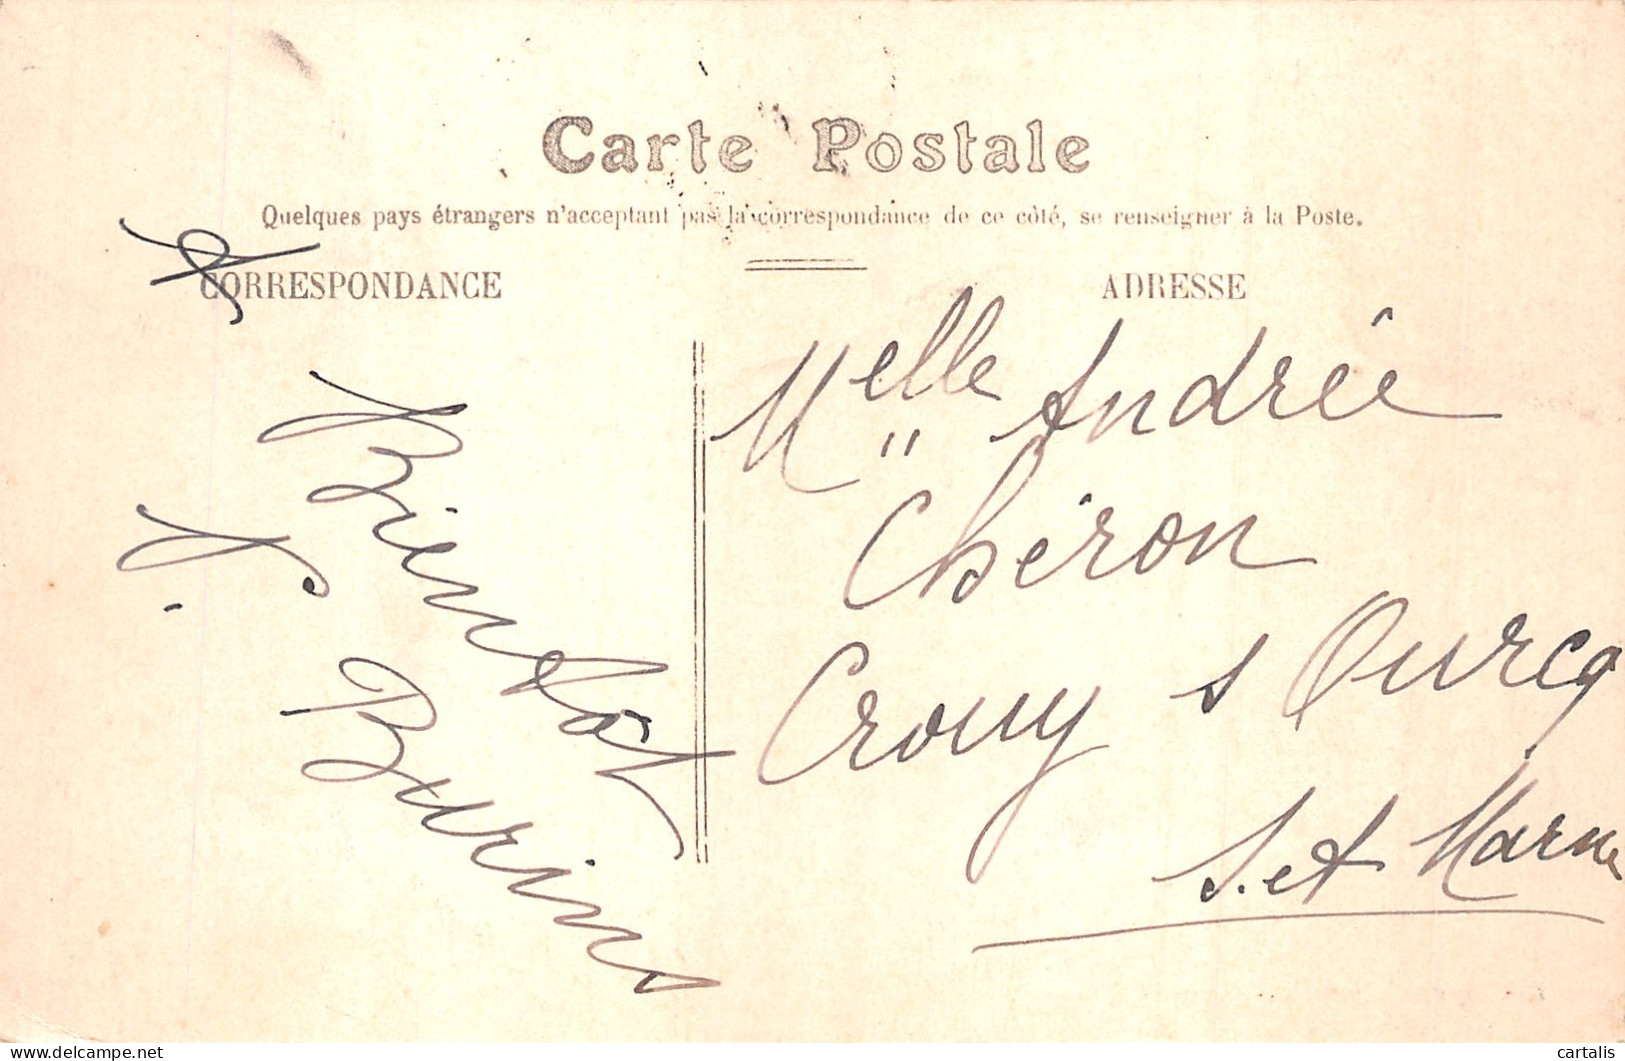 Carte Postale
Quelques pays étrangers n'acceptent pas la correspondance de ce côté, se renseigner à la Poste.
CORRESPONDANCE
ADRESSE
A
Bientot
Burin
Melle Andrée
Chéron
Crouy s Ourcq
S. et Marne
cartalis